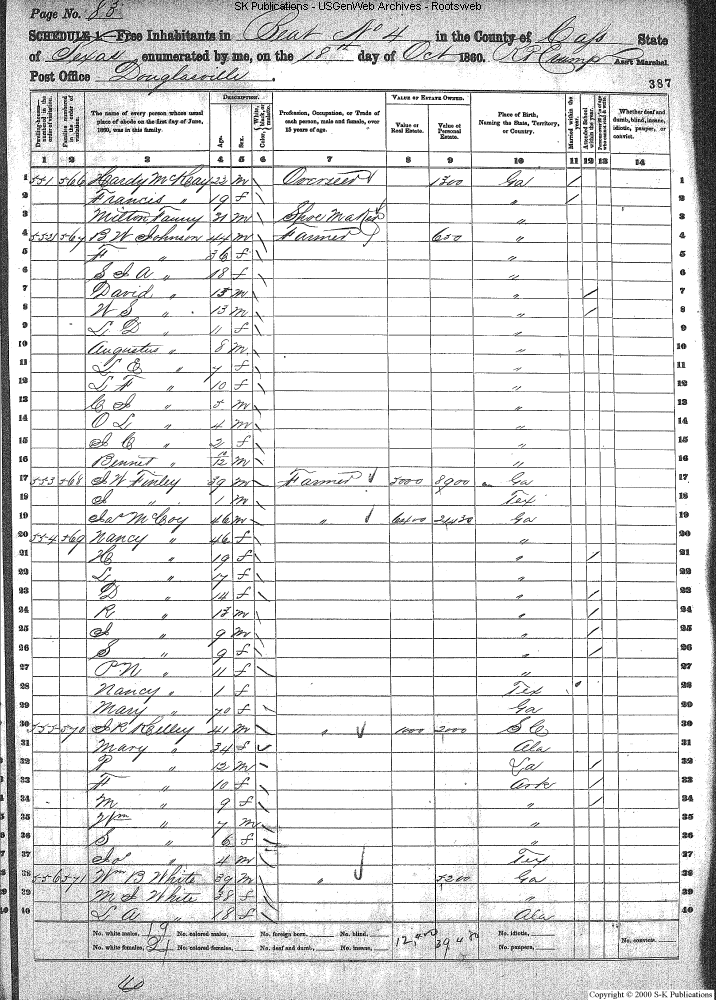 SK Publications - USGenWeb Archives - Rootsweb
Page No. 83
SCHEDULE 1.—Free Inhabitants in Beat No 4 in the County of Cass State
of Texas enumerated by me, on the 18th day of Oct 1860. Ass't Marshal.
Post Office Douglasville.
387
Dwelling-houses—numbered in the order of visitation.
Families numbered in the order of visitation.
The name of every person whose usual place of abode on the first day of June, 1860, was in this family.
DESCRIPTION.
Age.
Sex.
Color, White, black, or mulatto.
Profession, Occupation, or Trade of each person, male and female, over 15 years of age.
VALUE OF ESTATE OWNED.
Value of Real Estate.
Value of Personal Estate.
Place of Birth, Naming the State, Territory, or Country.
Married within the year.
Attended School within the year.
Whether deaf and dumb, blind, insane, idiotic, pauper, or convict.
1 2 3 4 5 6 7 8 9 10 11 12 13 14
1 551 566 Hardy McKay 22 m Overseer 1300 Ga / 1
2 Francis " 19 f " / 2
3 Milton Fanny 31 m Shoe Maker " 3
4 567 B W Johnson 44 m Farmer 650 " 4
5 F " 36 f " 5
6 S J A " 18 f " 6
7 David " 15 m " / 7
8 W S " 13 m " / 8
9 L D " 11 f " 9
10 Augustus " 8 m " 10
11 L E " 7 f " 11
12 L F " 10 f " 12
13 C J " 5 m " 13
14 O L " 4 m " 14
15 S C " 2 f " 15
16 Bennet " /12 m " 16
17 553 568 J W Finley 39 m Farmer 3000 8900 Ga 17
18 J " 1 m Tex 18
19 Jas McCoy 46 m " 6400 Ga 19
20 554 569 Nancy " 46 f " 20
21 H " 19 f " / 21
22 L " 17 f " 22
23 D " 14 f " / 23
24 R " 13 m " / 24
25 J " 9 m " / 25
26 S " 9 f " / 26
27 P N " 11 f " 27
28 Nancy " 1 f Tex 28
29 Mary " 70 f Ga 29
30 555 570 J R Kelley 41 m " 1000 2000 S C 30
31 Mary " 34 f Ala 31
32 P " 12 m La / 32
33 F " 10 f Ark / 33
34 M " 9 f " / 34
35 Wm " 7 m " 35
36 S " 6 f " 36
37 Jos " 4 m Tex 37
38 556 571 Wm B White 39 m " 5200 Ga 38
39 M J White 38 f " 39
40 L A " 18 f Ala 40
No. white males, 19 No. colored males, No. foreign born, No. blind, No. idiotic,
No. white females, 21 No. colored females, No. deaf and dumb, No. insane, No. paupers, No. convicts.
Copyright © 2000 S-K Publications